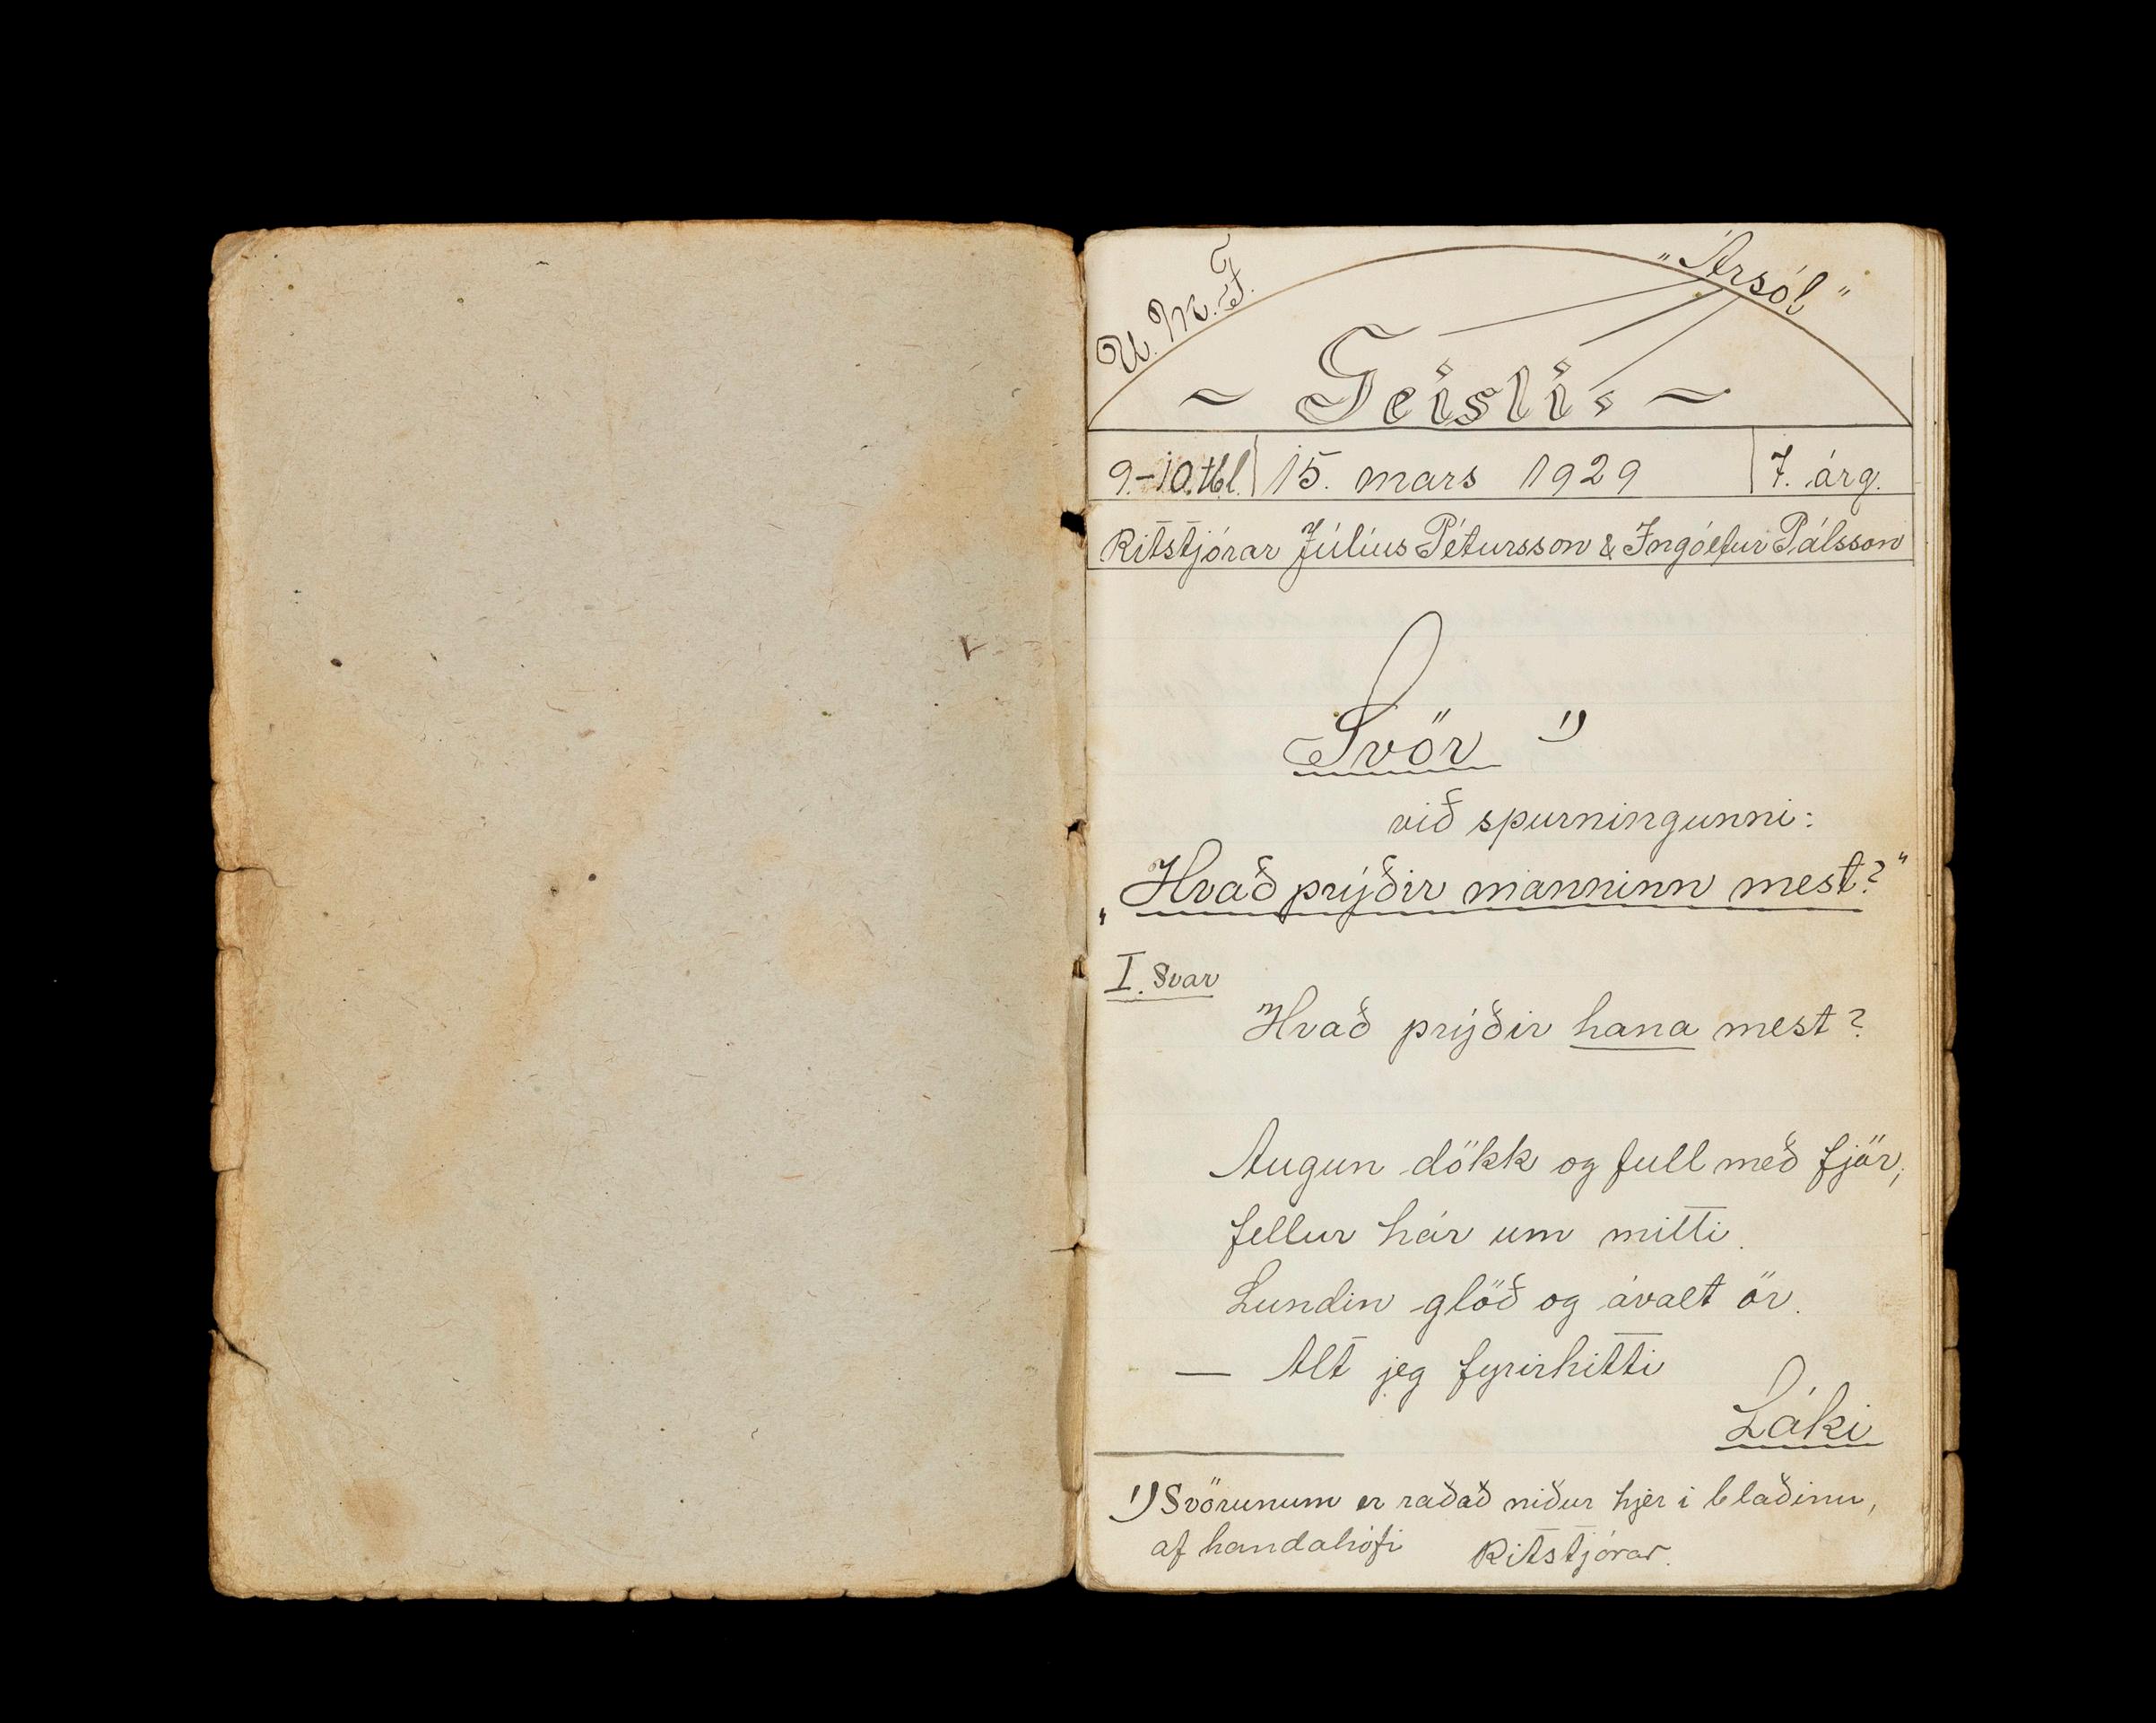 U. M. F. „Ársól"
~ Geisli ~
9.-10. tbl. 15. mars 1929 7. árg.
Ritstjórar Júlíus Pétursson & Ingólfur Pálsson
Svör 1)
við spurningunni:
„Hvað prýðir manninn mest?"
I. Svar
Hvað prýðir hana mest?
Augun dökk og full með fjör,
fellur hár um mitti.
Lundin glöð og ávalt ör.
— Alt jeg fyrirhitti
Láki
1) Svörunum er raðað niður hjer i blaðinu,
af handahófi Ritstjórar.